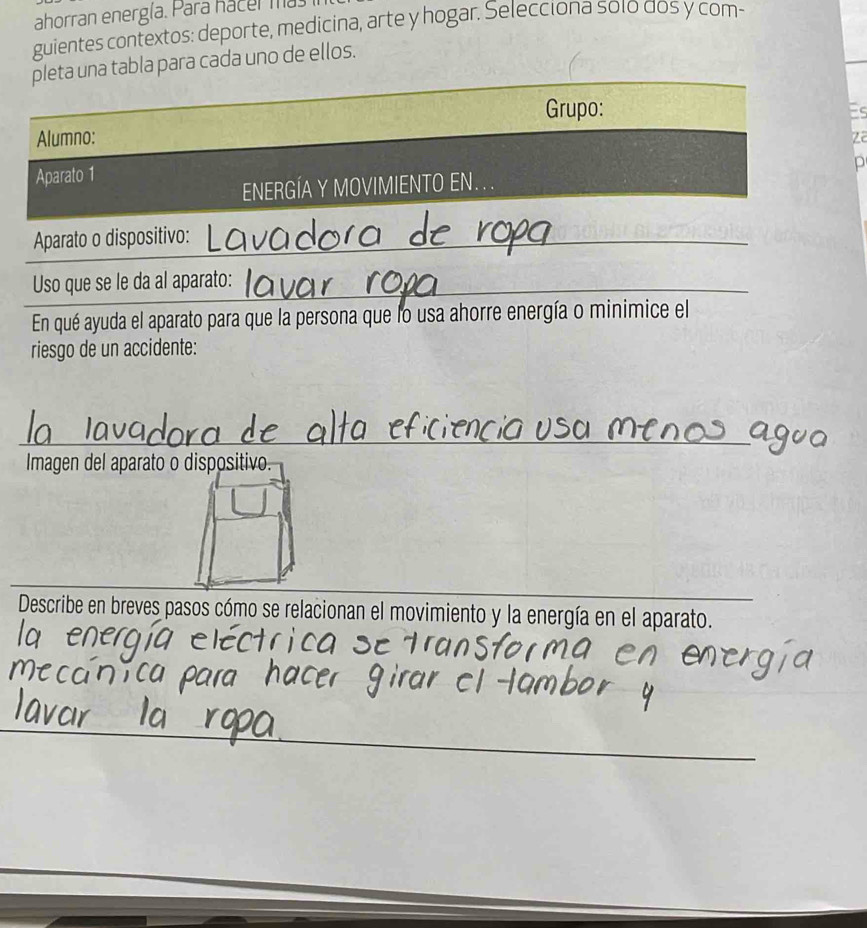 ahorran energía. Para hacer más
guientes contextos: deporte, medicina, arte y hogar. Selecciona solo dos y com-
pleta una tabla para cada uno de ellos.
Grupo:
Alumno:
Aparato 1
ENERGÍA Y MOVIMIENTO EN...
Aparato o dispositivo: Lavadora de ropa
Uso que se le da al aparato: lavar ropa
En qué ayuda el aparato para que la persona que lo usa ahorre energía o minimice el
riesgo de un accidente:
la lavadora de alta eficiencia usa menos agua
Imagen del aparato o dispositivo.
Describe en breves pasos cómo se relacionan el movimiento y la energía en el aparato.
la energía eléctrica se transforma en energía
mecánica para hacer girar el tambor y
lavar la ropa.